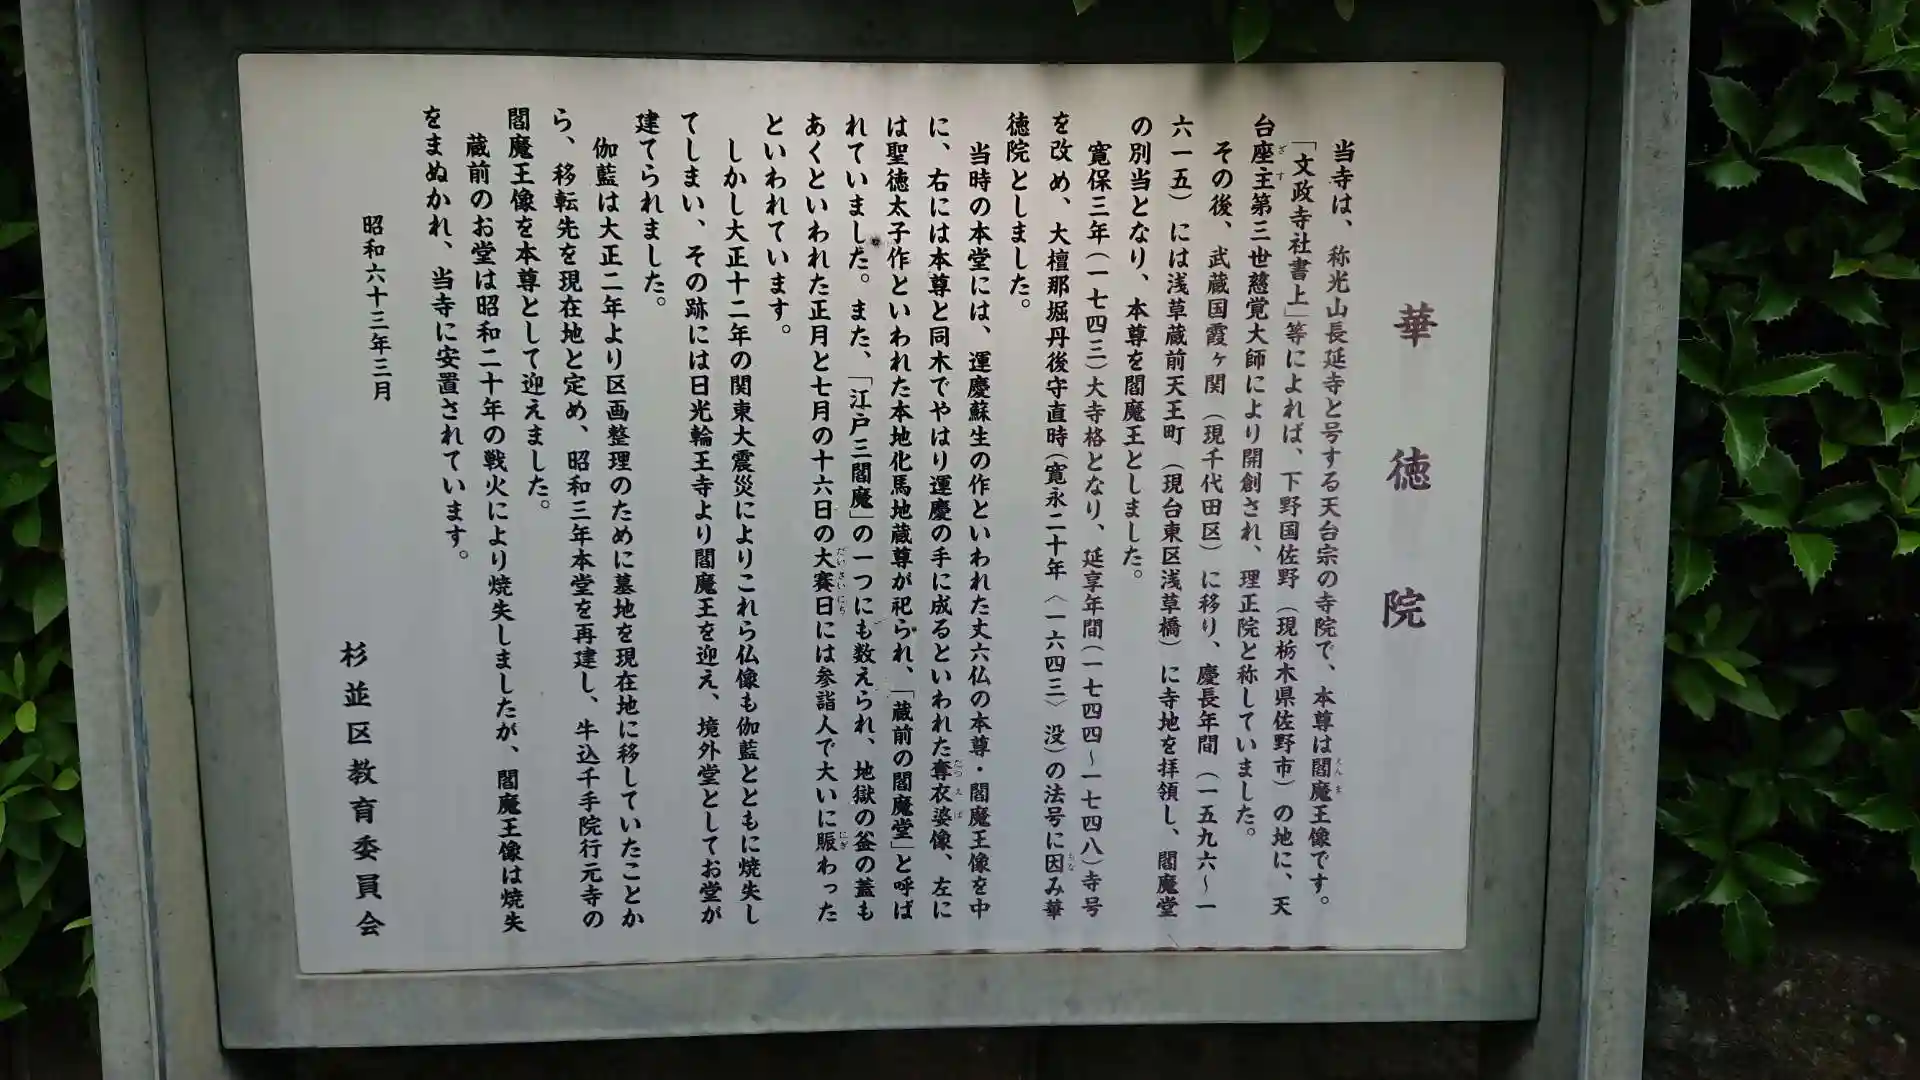 華徳院
当寺は、称光山長延寺と号する天台宗の寺院で、本尊は閻魔王像です。
「文政寺社書上」等によれば、下野国佐野（現栃木県佐野市）の地に、天
台座主第三世慈覚大師により開創され、理正院と称していました。
その後、武蔵国霞ヶ関（現千代田区）に移り、慶長年間（一五九六～一
六一五）には浅草蔵前天王町（現台東区浅草橋）に寺地を拝領し、閻魔堂
の別当となり、本尊を閻魔王としました。
寛保三年（一七四三）大寺格となり、延享年間（一七四四～一七四八）寺号
を改め、大檀那堀丹後守直時（寛永二十年〈一六四三〉没）の法号に因み華
徳院としました。
当時の本堂には、運慶蘇生の作といわれた丈六仏の本尊・閻魔王像を中
に、右には本尊と同木でやはり運慶の手に成るといわれた奪衣婆像、左に
は聖徳太子作といわれた本地化馬地蔵尊が祀られ、「蔵前の閻魔堂」と呼ば
れていました。また、「江戸三閻魔」の一つにも数えられ、地獄の釜の蓋も
あくといわれた正月と七月の十六日の大賽日には参詣人で大いに賑わった
といわれています。
しかし大正十二年の関東大震災によりこれら仏像も伽藍とともに焼失し
てしまい、その跡には日光輪王寺より閻魔王を迎え、境外堂としてお堂が
建てられました。
伽藍は大正二年より区画整理のために墓地を現在地に移していたことか
ら、移転先を現在地と定め、昭和三年本堂を再建し、牛込千手院行元寺の
閻魔王像を本尊として迎えました。
蔵前のお堂は昭和二十年の戦火により焼失しましたが、閻魔王像は焼失
をまぬかれ、当寺に安置されています。
昭和六十三年三月
杉並区教育委員会